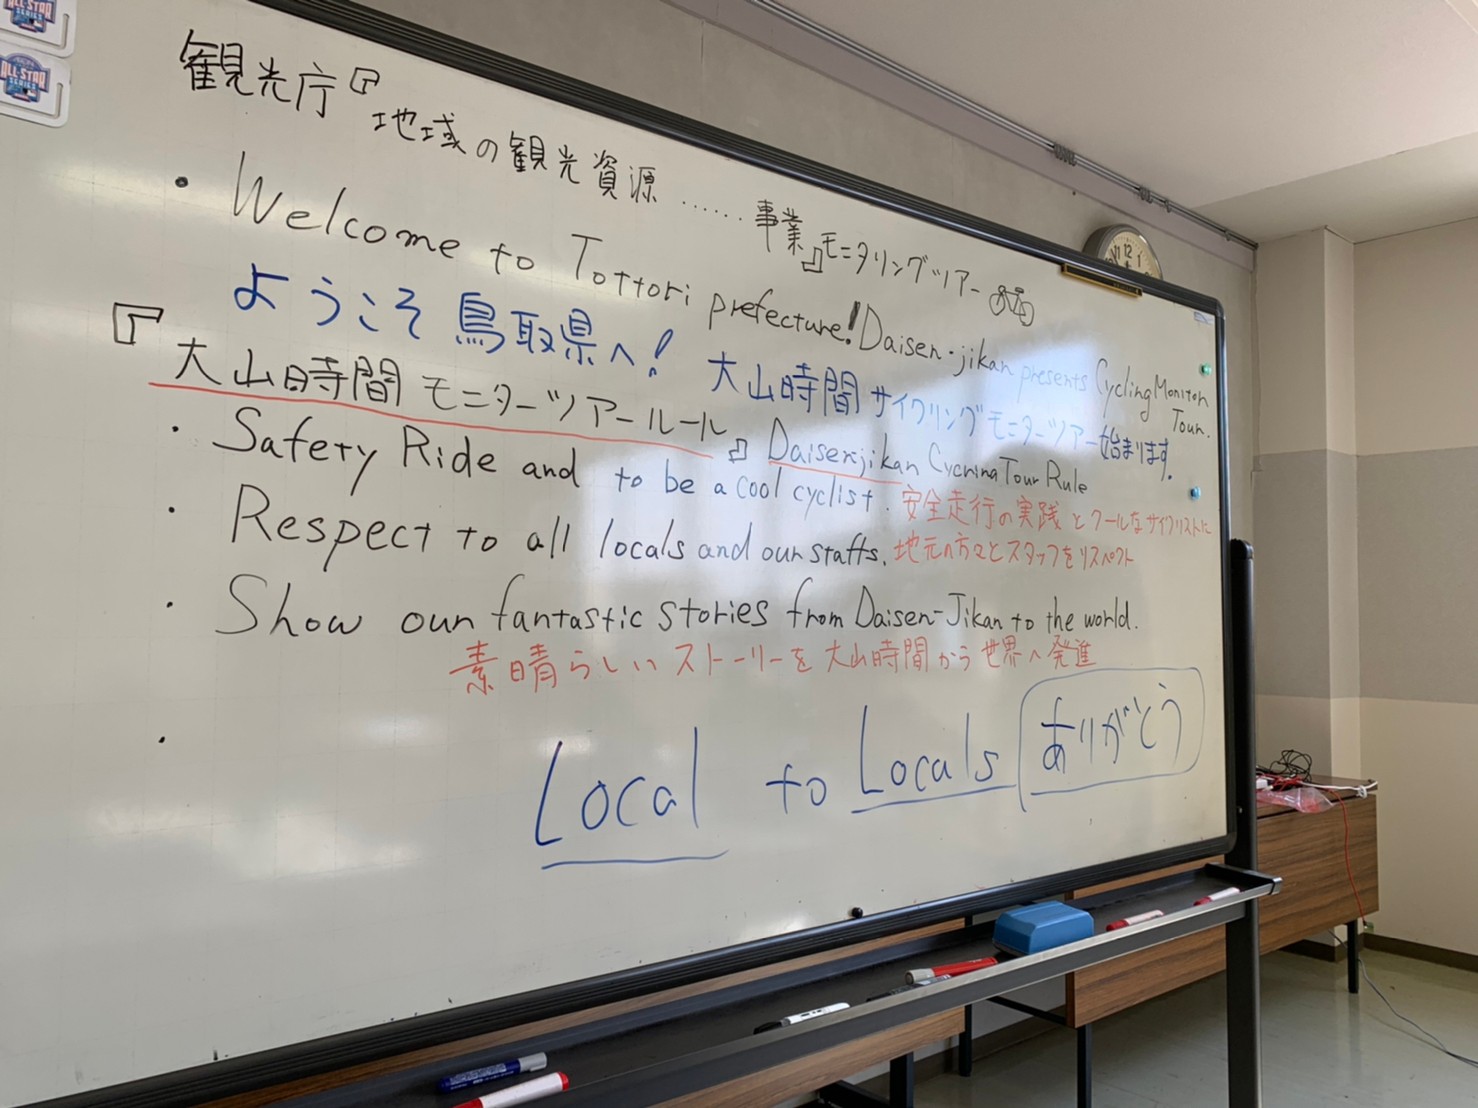 観光庁『地域の観光資源……事業』モニタリングツアー
・Welcome to Tottori prefecture! Daisen-jikan presents Cycling Moniton Tour.
ようこそ鳥取県へ! 大山時間サイクリングモニターツアー始まります。
『大山時間モニターツアールール』 Daisenjikan Tour Rule
・Safety Ride and to be a cool cyclist. 安全走行の実践とクールなサイクリストに
・Respect to all locals and our staffs. 地元の方々とスタッフをリスペクト
・Show our fantastic stories from Daisen-Jikan to the world.
素晴らしいストーリーを大山時間から世界へ発進
・
Local to Locals ありがとう
ALL-STAR
SERIES
ALL-STAR
SERIES
11 12 1